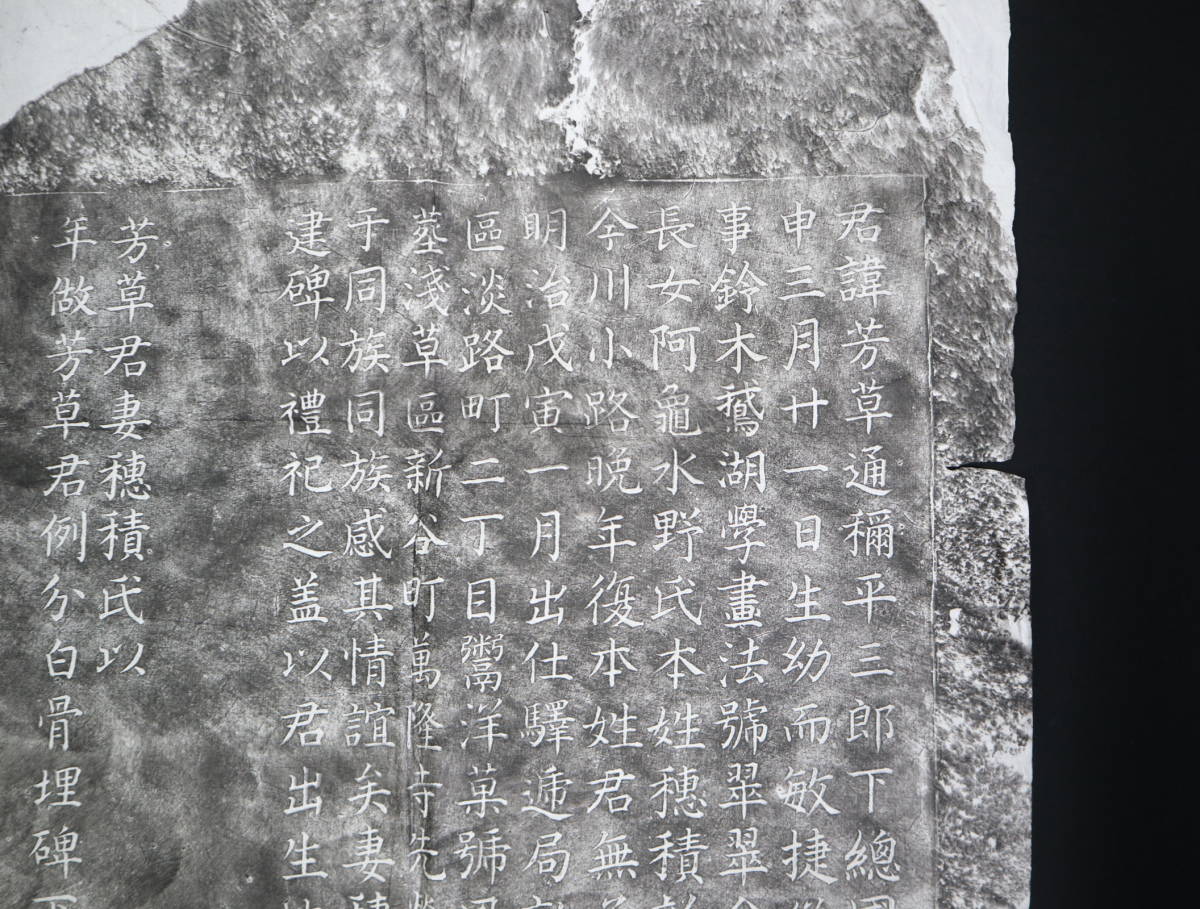 君諱芳草通稱平三郎下總國
申三月廿一日生幼而敏捷
事鈴木鵞湖學畫法號翠翠
長女阿龜水野氏本姓穗積
今川小路晚年復本姓君無
明治戊寅一月出仕驛遞局
區淡路町二丁目鬻洋菓號
塟淺草區新谷町萬隆寺先塋
于同族同族感其情誼矣妻穗
建碑以禮祀之盖以君出生
芳草君妻穗積氏以
年做芳草君例分白骨埋碑下